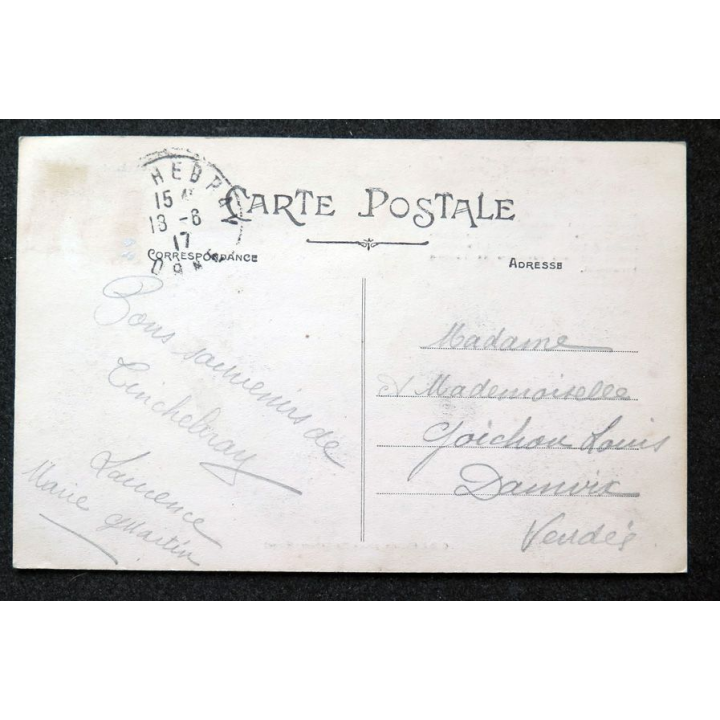 HEBRAY
15
13-8
17
CARTE POSTALE
CORRESPONDANCE
ADRESSE
Bons souvenirs de
Tinchebray
Laurence
Marie Martin
Madame
& Mademoiselle
Goichon Louis
Damvix
Vendée